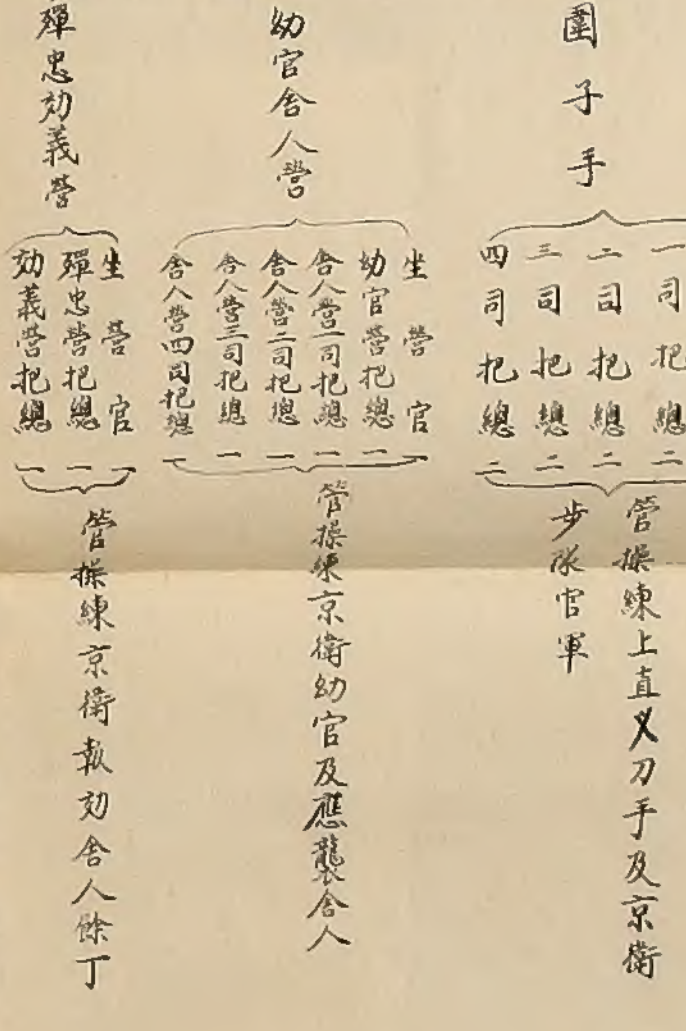 圍子手
一司把總二
二司把總二
三司把總二
四司把總二
管操練上直叉刀手及京衛
步隊官軍
幼官舍人營
坐營官一
幼官營把總一
舍人營一司把總一
舍人營二司把總一
舍人營三司把總一
舍人營四司把總一
管操練京衛幼官及應襲舍人
殫忠効義營
坐營官一
殫忠營把總一
効義營把總一
管操練京衛報効舍人餘丁